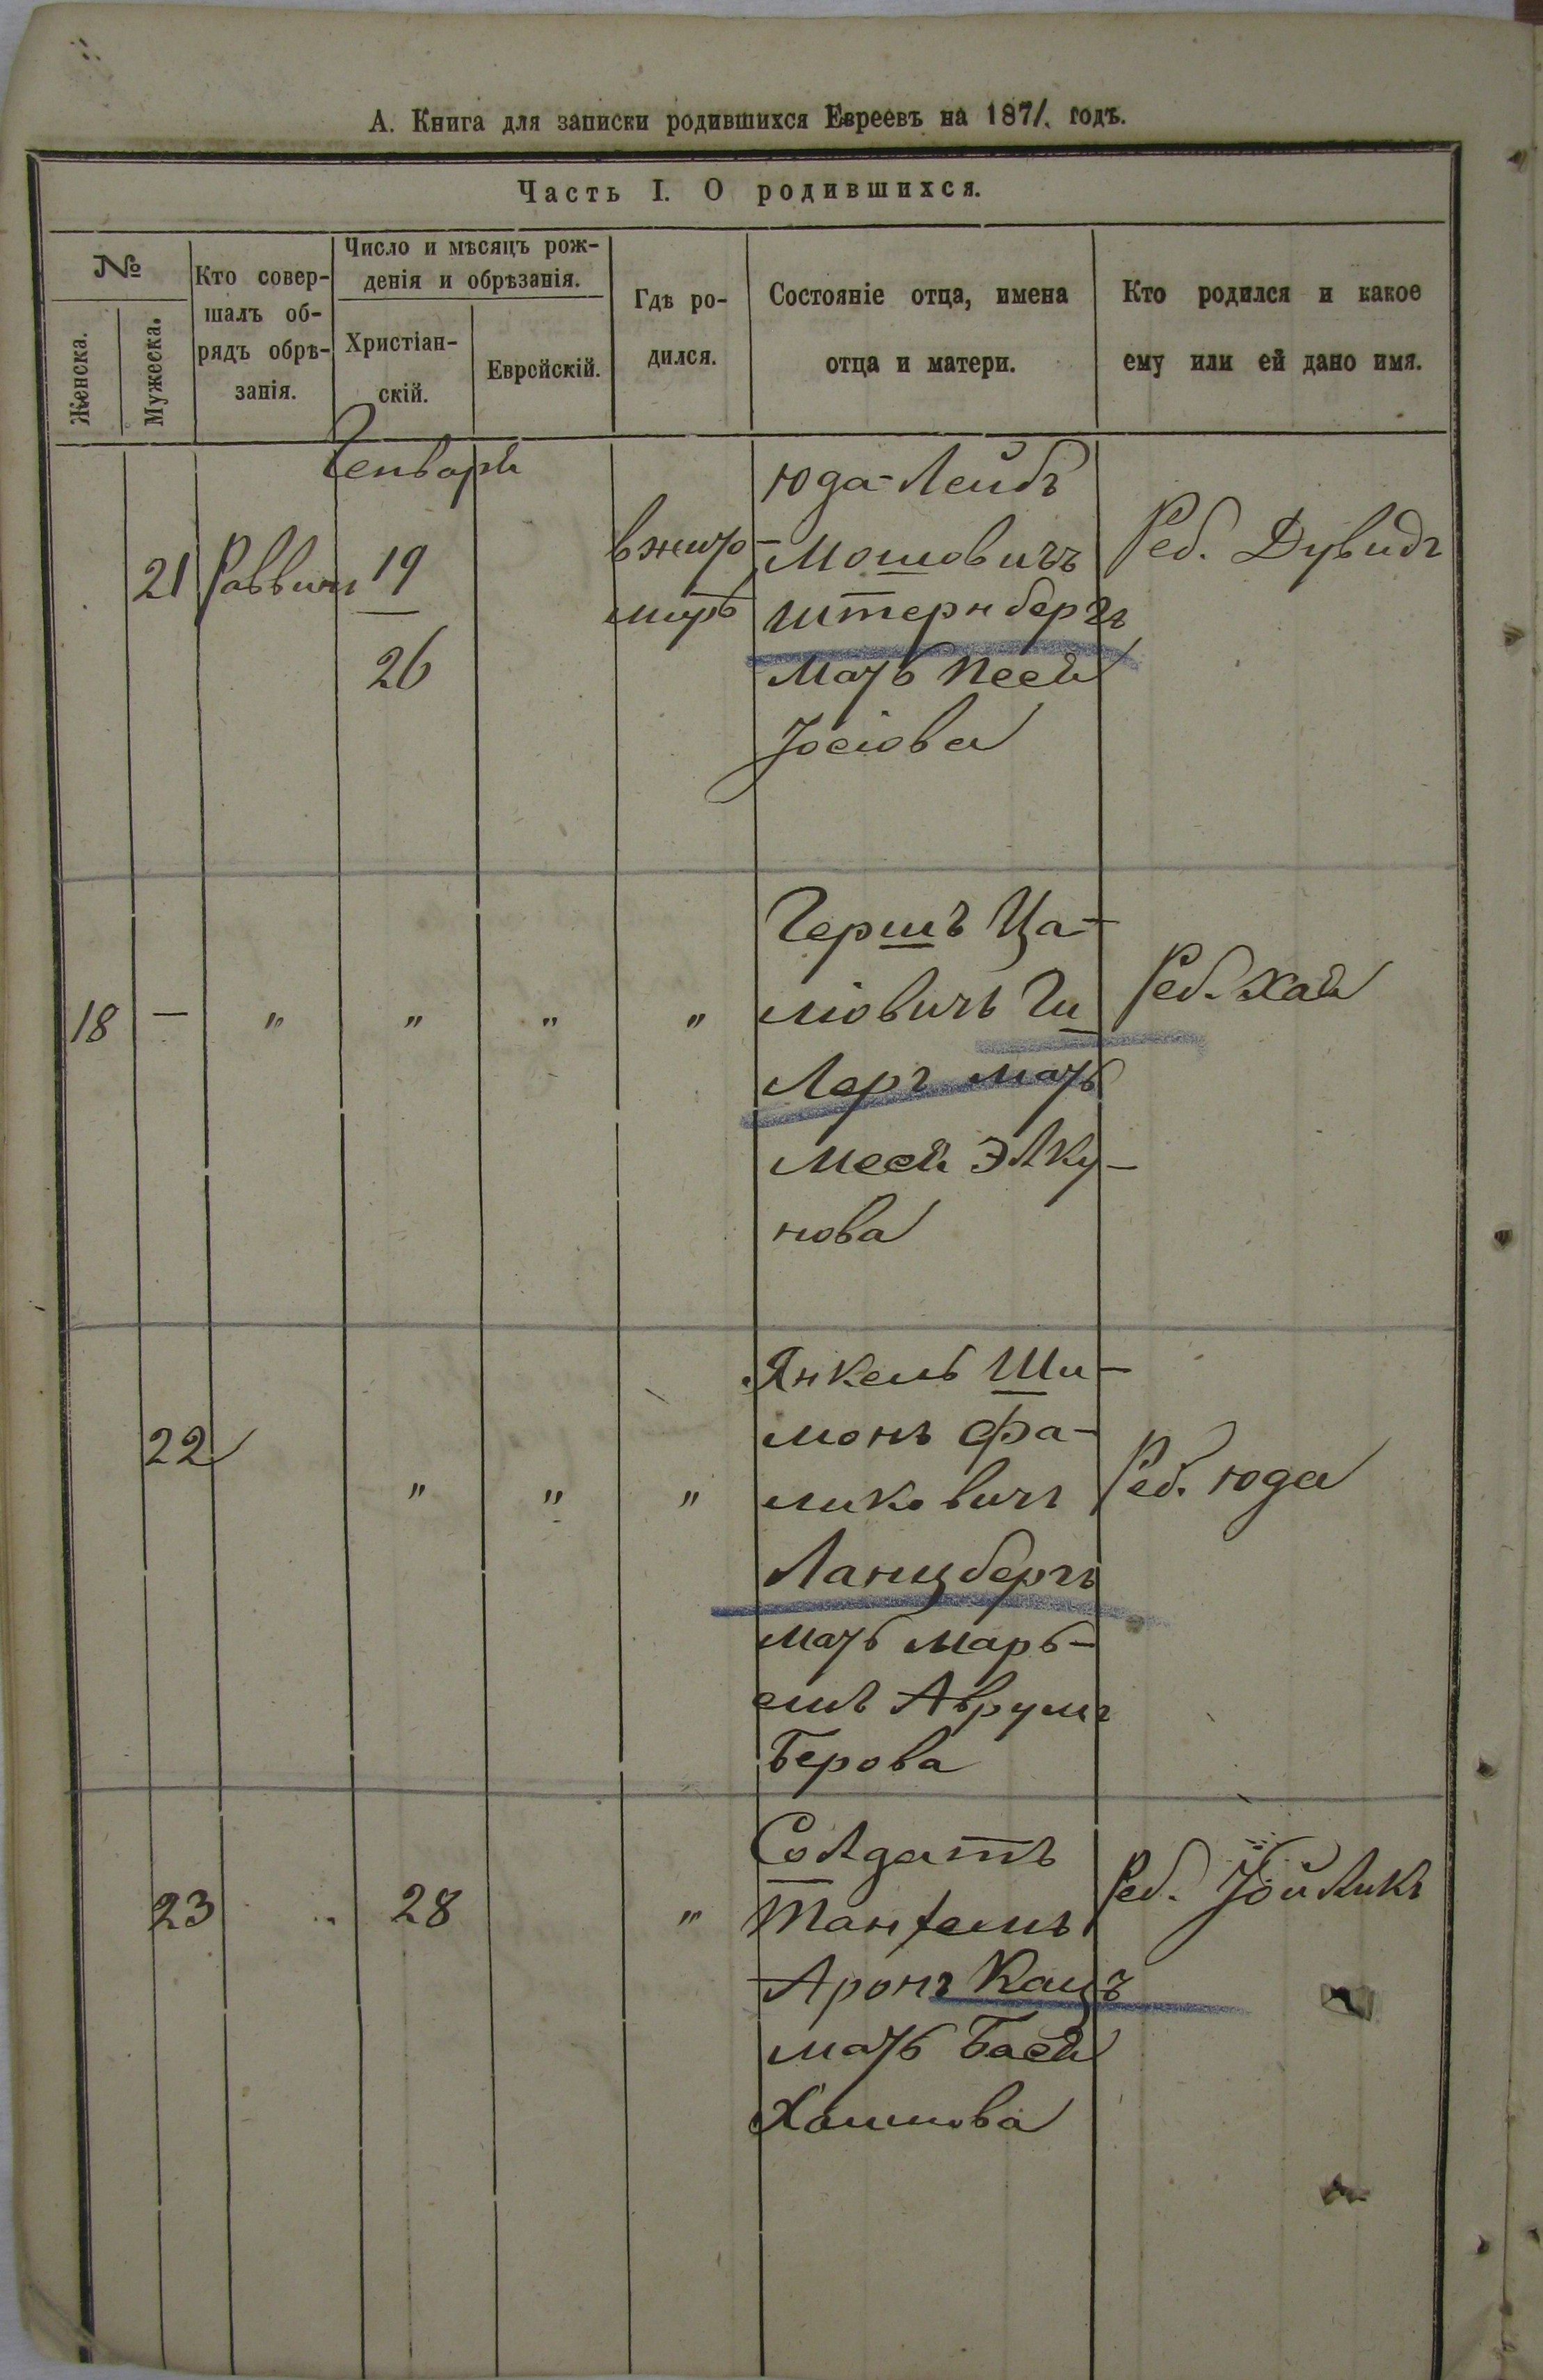 А. Книга для записки родившихся Евреевъ на 1871. годъ.
Часть I. О родившихся.
№
Женска.
Мужеска.
Кто совер-
шалъ об-
рядъ обрѣ-
занія.
Число и мѣсяцъ рож-
денія и обрѣзанія.
Христіан-
скій.
Еврейскій.
Гдѣ ро-
дился.
Состояніе отца, имена
отца и матери.
Кто родился и какое
ему или ей дано имя.
Генваря
21 Раввинъ 19
26
в жито-
миръ
юда-Лейбъ
Мошовичъ
Штернбергъ
мать Песя
Іосіова
Реб. Дувидъ
18 — " " " "
Гершъ Ца-
ліовичъ Ги
Леръ мать
Мося Элку-
нова
Реб. Хая
22 " " "
Янкель Ши-
монъ Фа-
ликовичъ
Ланцбергъ
мать Марь-
Аврумъ
Берова
Реб. юда
23 „ 28 "
Солдатъ
Аронъ Кацъ
мать Бася
Хаимова
Реб.